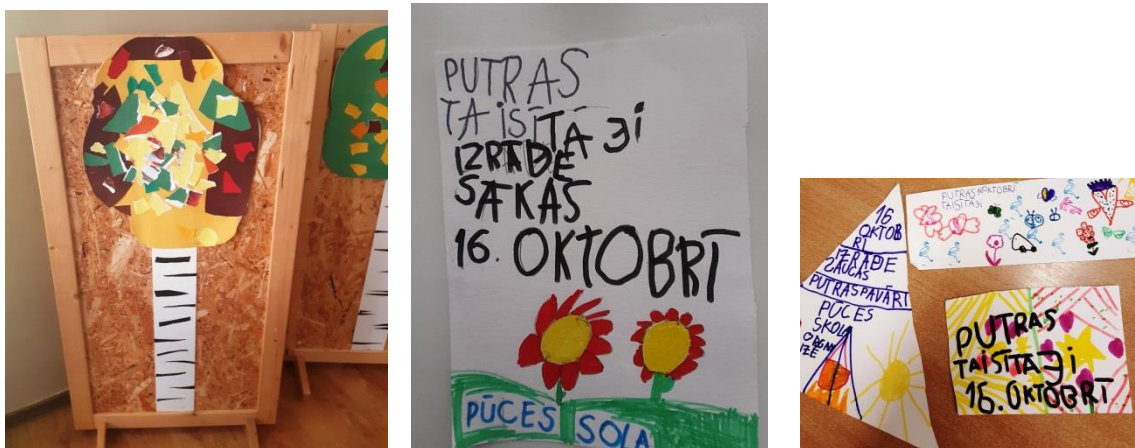 PUTRAS
TAISĪTĀJI
IZRĀDE
SĀKAS
16. OKTOBRĪ
PŪCES SOLA
16
OKTOB
RĪ
IZRĀDE
SAUCAS
PUTRASPAVĀRI
PŪCES
SKOLA
PUTRAS 16 OKTOBRĪ
TAISĪTAJI
PUTRAS
TAISĪTAJI
16. OKTOBRĪ